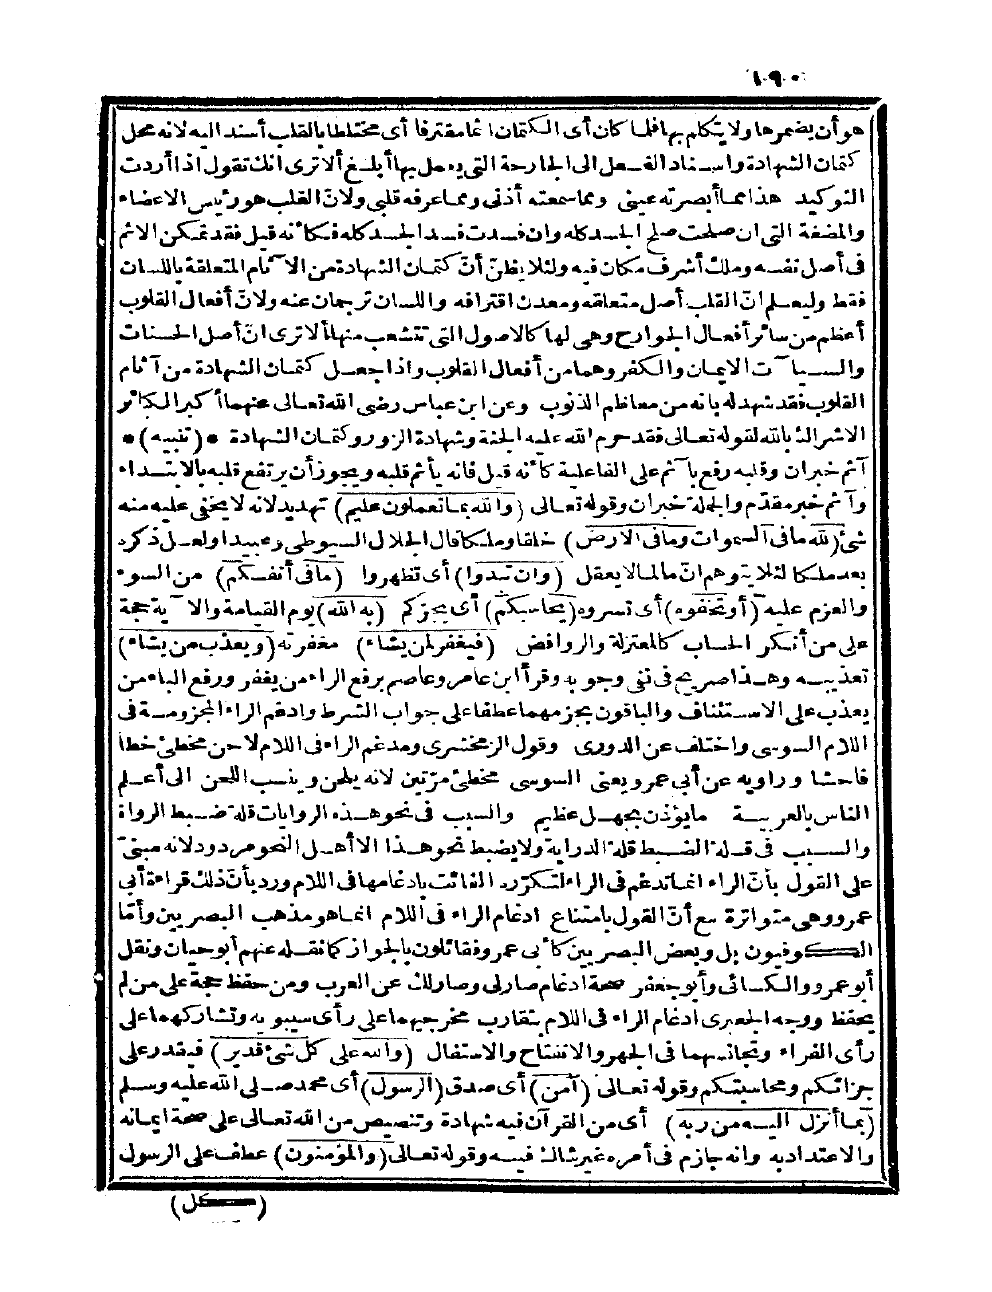 ١٩٠
هو أن يضمرها ولا يتكلم بها فلما كان أى الكتمان اثما مقترفا أى مختلطا بالقلب أسند اليه لانه محل
كتمان الشهادة واسناد الفعل الى الجارحة التى يعمل بها أبلغ ألا ترى انك تقول اذا أردت
التوكيد هذا مما أبصرته عينى ومما سمعته أذنى ومما عرفه قلبى ولان القلب هو رئيس الاعضاء
والمضغة التى ان صلحت صلح الجسد كله وان فسدت فسد الجسد كله فكأنه قيل فقد تمكن الاثم
فى أصل نفسه وملك أشرف مكان فيه ولئلا يظن أن كتمان الشهادة من الآثام المتعلقة باللسان
فقط وليعلم ان القلب أصل متعلقه ومعدن اقترافه واللسان ترجمان عنه ولان أفعال القلوب
أعظم من سائر أفعال الجوارح وهى لها كالاصول التى تتشعب منها ألا ترى ان أصل الحسنات
والسيآت الايمان والكفر وهما من أفعال القلوب واذا جعل كتمان الشهادة من آثام
القلوب فقد شهد له بانه من معاظم الذنوب وعن ابن عباس رضى الله تعالى عنهما أكبر الكبائر
الاشراك بالله لقوله تعالى فقد حرم الله عليه الجنة وشهادة الزور وكتمان الشهادة * (تنبيه) *
آثم خبر ان وقلبه رفع بآثم على الفاعلية كأنه قيل فانه يأثم قلبه ويجوز أن يرتفع قلبه بالابتداء
وآثم خبر مقدم والجملة خبر ان وقوله تعالى (والله بما تعملون عليم) تهديد لانه لا يخفى عليه منه
شئ (لله مافى السموات ومافى الارض) خلقا وملكا قال الجلال السيوطى وعبيدا ولعل ذكره
بعد ملكا لئلا يتوهم ان ما لما لا يعقل (وان تبدوا) أى تظهروا (مافى أنفسكم) من السوء
والعزم عليه (أو تخفوه) أى تسروه (يحاسبكم) أى يجزكم (به الله) يوم القيامة والآية حجة
على من أنكر الحساب كالمعتزلة والروافض (فيغفر لمن يشاء) مغفرته (ويعذب من يشاء)
تعذيبه وهذا صريح فى نفى وجوبه وقرأ ابن عامر وعاصم برفع الراء من يغفر ورفع الباء من
يعذب على الاستئناف والباقون بجزمهما عطفا على جواب الشرط وادغم الراء المجزومة فى
اللام السوسى واختلف عن الدورى وقول الزمخشرى ومدغم الراء فى اللام لاحن مخطئ خطأ
فاحشا وراويه عن أبى عمرو يعنى السوسى مخطئ مرتين لانه يلحن وينسب اللحن الى أعلم
الناس بالعربية ما يؤذن بجهل عظيم والسبب فى نحو هذه الروايات قلة ضبط الرواة
والسبب فى قلة الضبط قلة الدراية ولا يضبط نحو هذا الا أهل النحو مردود لانه مبنى
على القول بأن الراء انما تدغم فى الراء لتكرّره الفائت بادغامها فى اللام ورد بأن ذلك قراءة أبى
عمرو وهى متواترة مع أن القول بامتناع ادغام الراء فى اللام انما هو مذهب البصريين وأما
الكوفيون بل وبعض البصريين كأبى عمرو فقائلون بالجواز كما نقله عنهم أبو حيان ونقل
أبو عمرو والكسائى وأبو جعفر صحة ادغام صار لى وصار لك عن العرب ومن حفظ حجة على من لم
يحفظ ووجه الجعبرى ادغام الراء فى اللام بتقارب مخرجيهما على رأى سيبويه وتشاركهما على
رأى الفراء وتجانسهما فى الجهر والانفتاح والاستفال (والله على كل شئ قدير) فيقدر على
جزائكم ومحاسبتكم وقوله تعالى (آمن) أى صدق (الرسول) أى محمد صلى الله عليه وسلم
(بما أنزل اليه من ربه) أى من القرآن فيه شهادة وتنصيص من الله تعالى على صحة ايمانه
والاعتداد به وانه جازم فى أمره غير شاك فيه وقوله تعالى (والمؤمنون) عطف على الرسول
(كل)